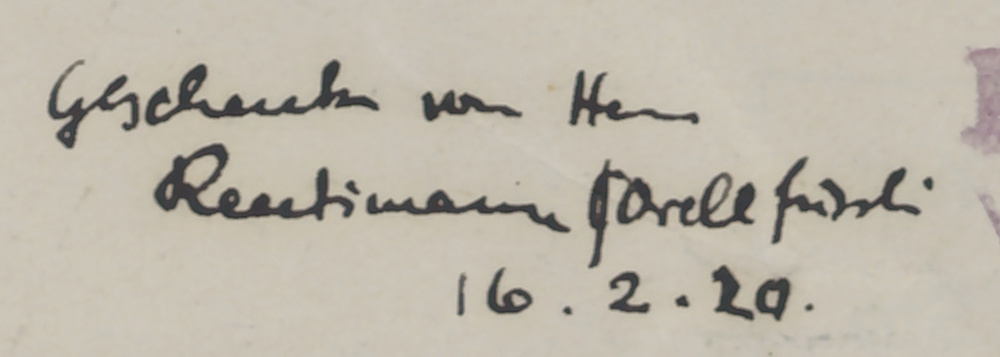 Geschenk von Herrn
Reutimann (Orell Füssli
16.2.20.